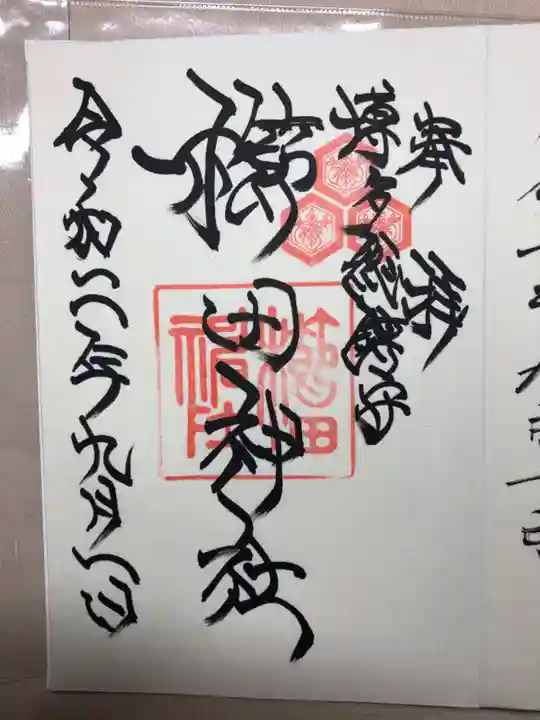 奉拝
博多総鎮守
櫛田神社
櫛田神社
令和二年九月八日